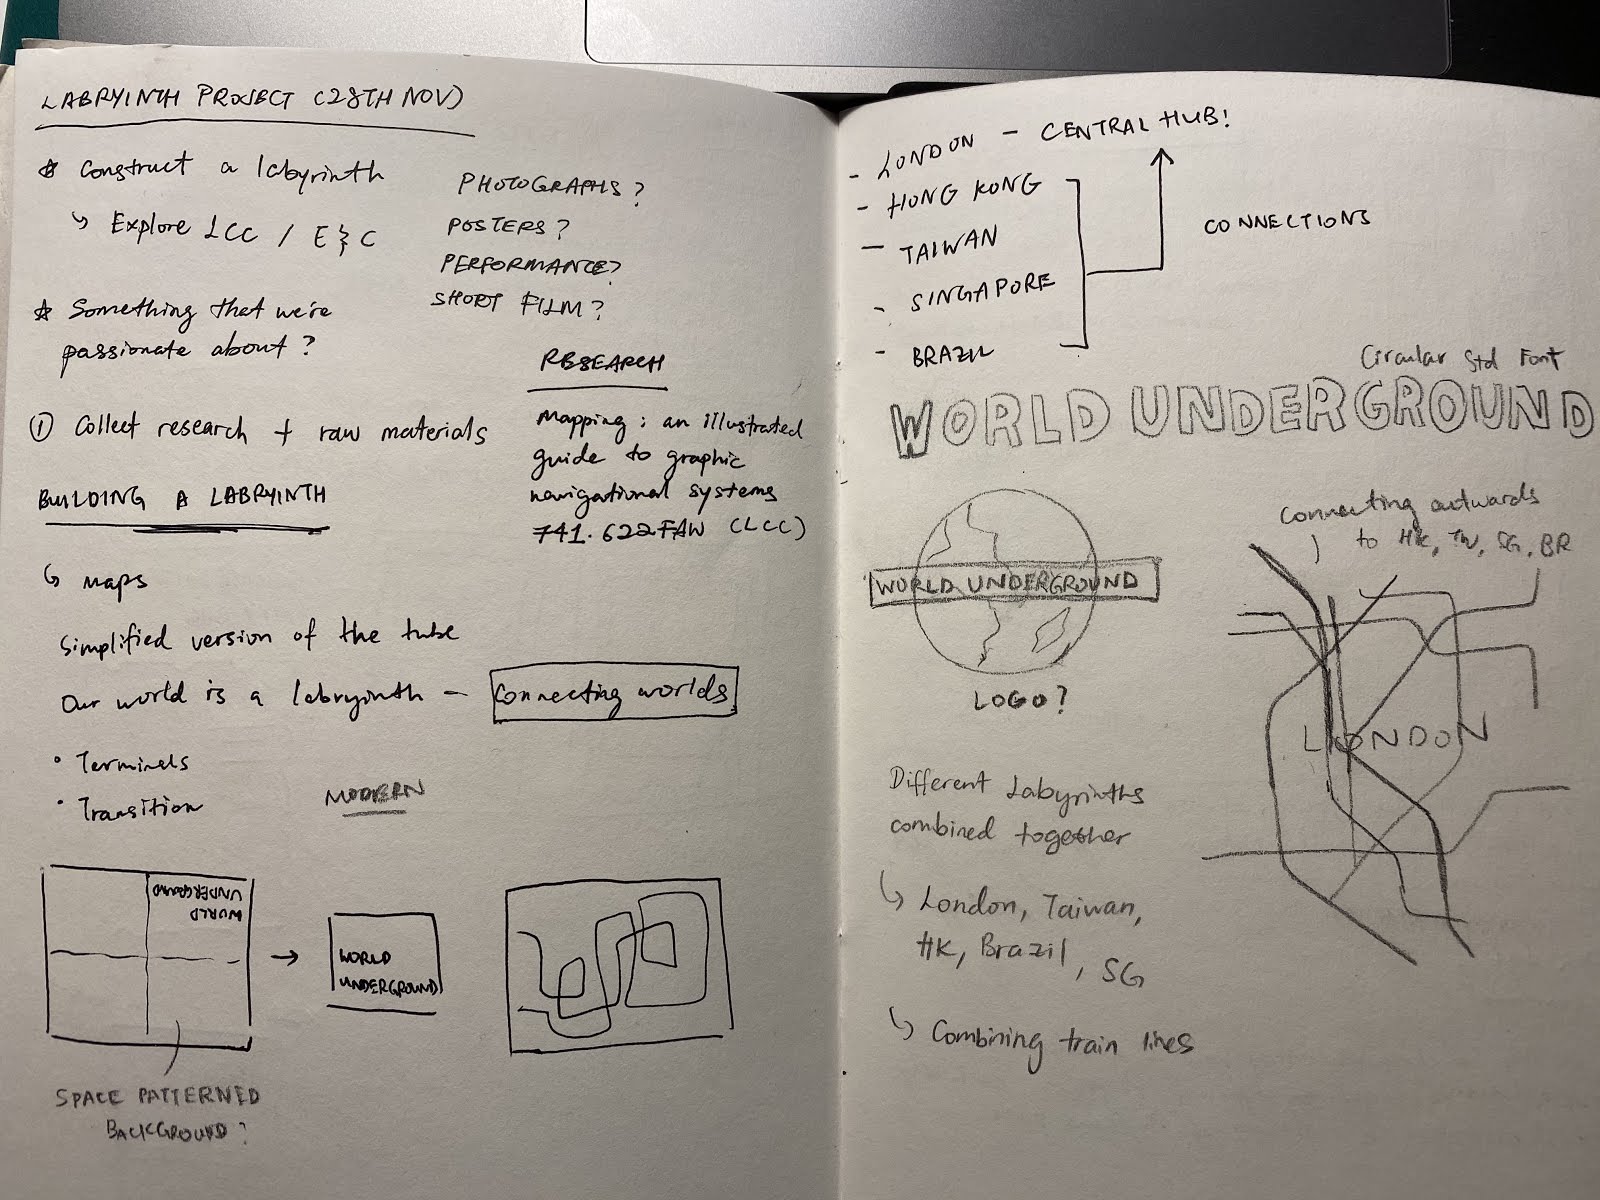 LABRYINTH PROJECT (28TH NOV)
☆ Construct a labyrinth
↳ Explore LCC / E & C
☆ Something that we're
passionate about?
PHOTOGRAPHS?
POSTERS?
PERFORMANCE?
SHORT FILM?
① Collect research + raw materials
RESEARCH
Mapping: an illustrated
guide to graphic
navigational systems
741.622FAW (LCC)
BUILDING A LABRYINTH
↳ Maps
Simplified version of the tube
Our world is a labryinth - Connecting worlds
• Terminals
• Transition
MODERN
WORLD
UNDERGROUND
→
WORLD
UNDERGROUND
SPACE PATTERNED
BACKGROUND?
- LONDON - CENTRAL HUB!
- HONG KONG
- TAIWAN
- SINGAPORE
- BRAZIL
CONNECTIONS
Circular Std Font
WORLD UNDERGROUND
WORLD UNDERGROUND
LOGO?
Connecting outwards
to HK, TW, SG, BR
LONDON
Different Labyrinths
combined together
↳ London, Taiwan,
HK, Brazil, SG
↳ Combining train lines